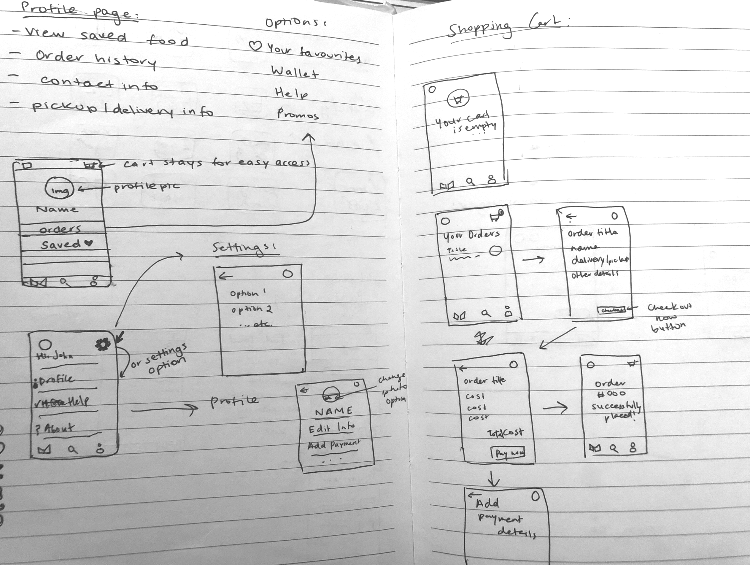 Profile page:
- View saved food
- Order history
- contact info
- pickup/delivery info
Options:
♡ Your favourites
Wallet
Help
Promos
cart stays for easy access
img
profile pic
Name
orders
saved ♥
Settings:
option 1
option 2
... etc.
Hi John
or settings
option
Profile
Help
? About
Profile
change
photo
option
NAME
Edit Info
Add payment
...
Shopping Cart:
Your cart
is empty
Your Orders
Title
order title
name
delivery/pickup
other details
Checkout
now
button
order title
cost
cost
cost
Total cost
Pay now
order
#000
successfully
placed!
Add
payment
details